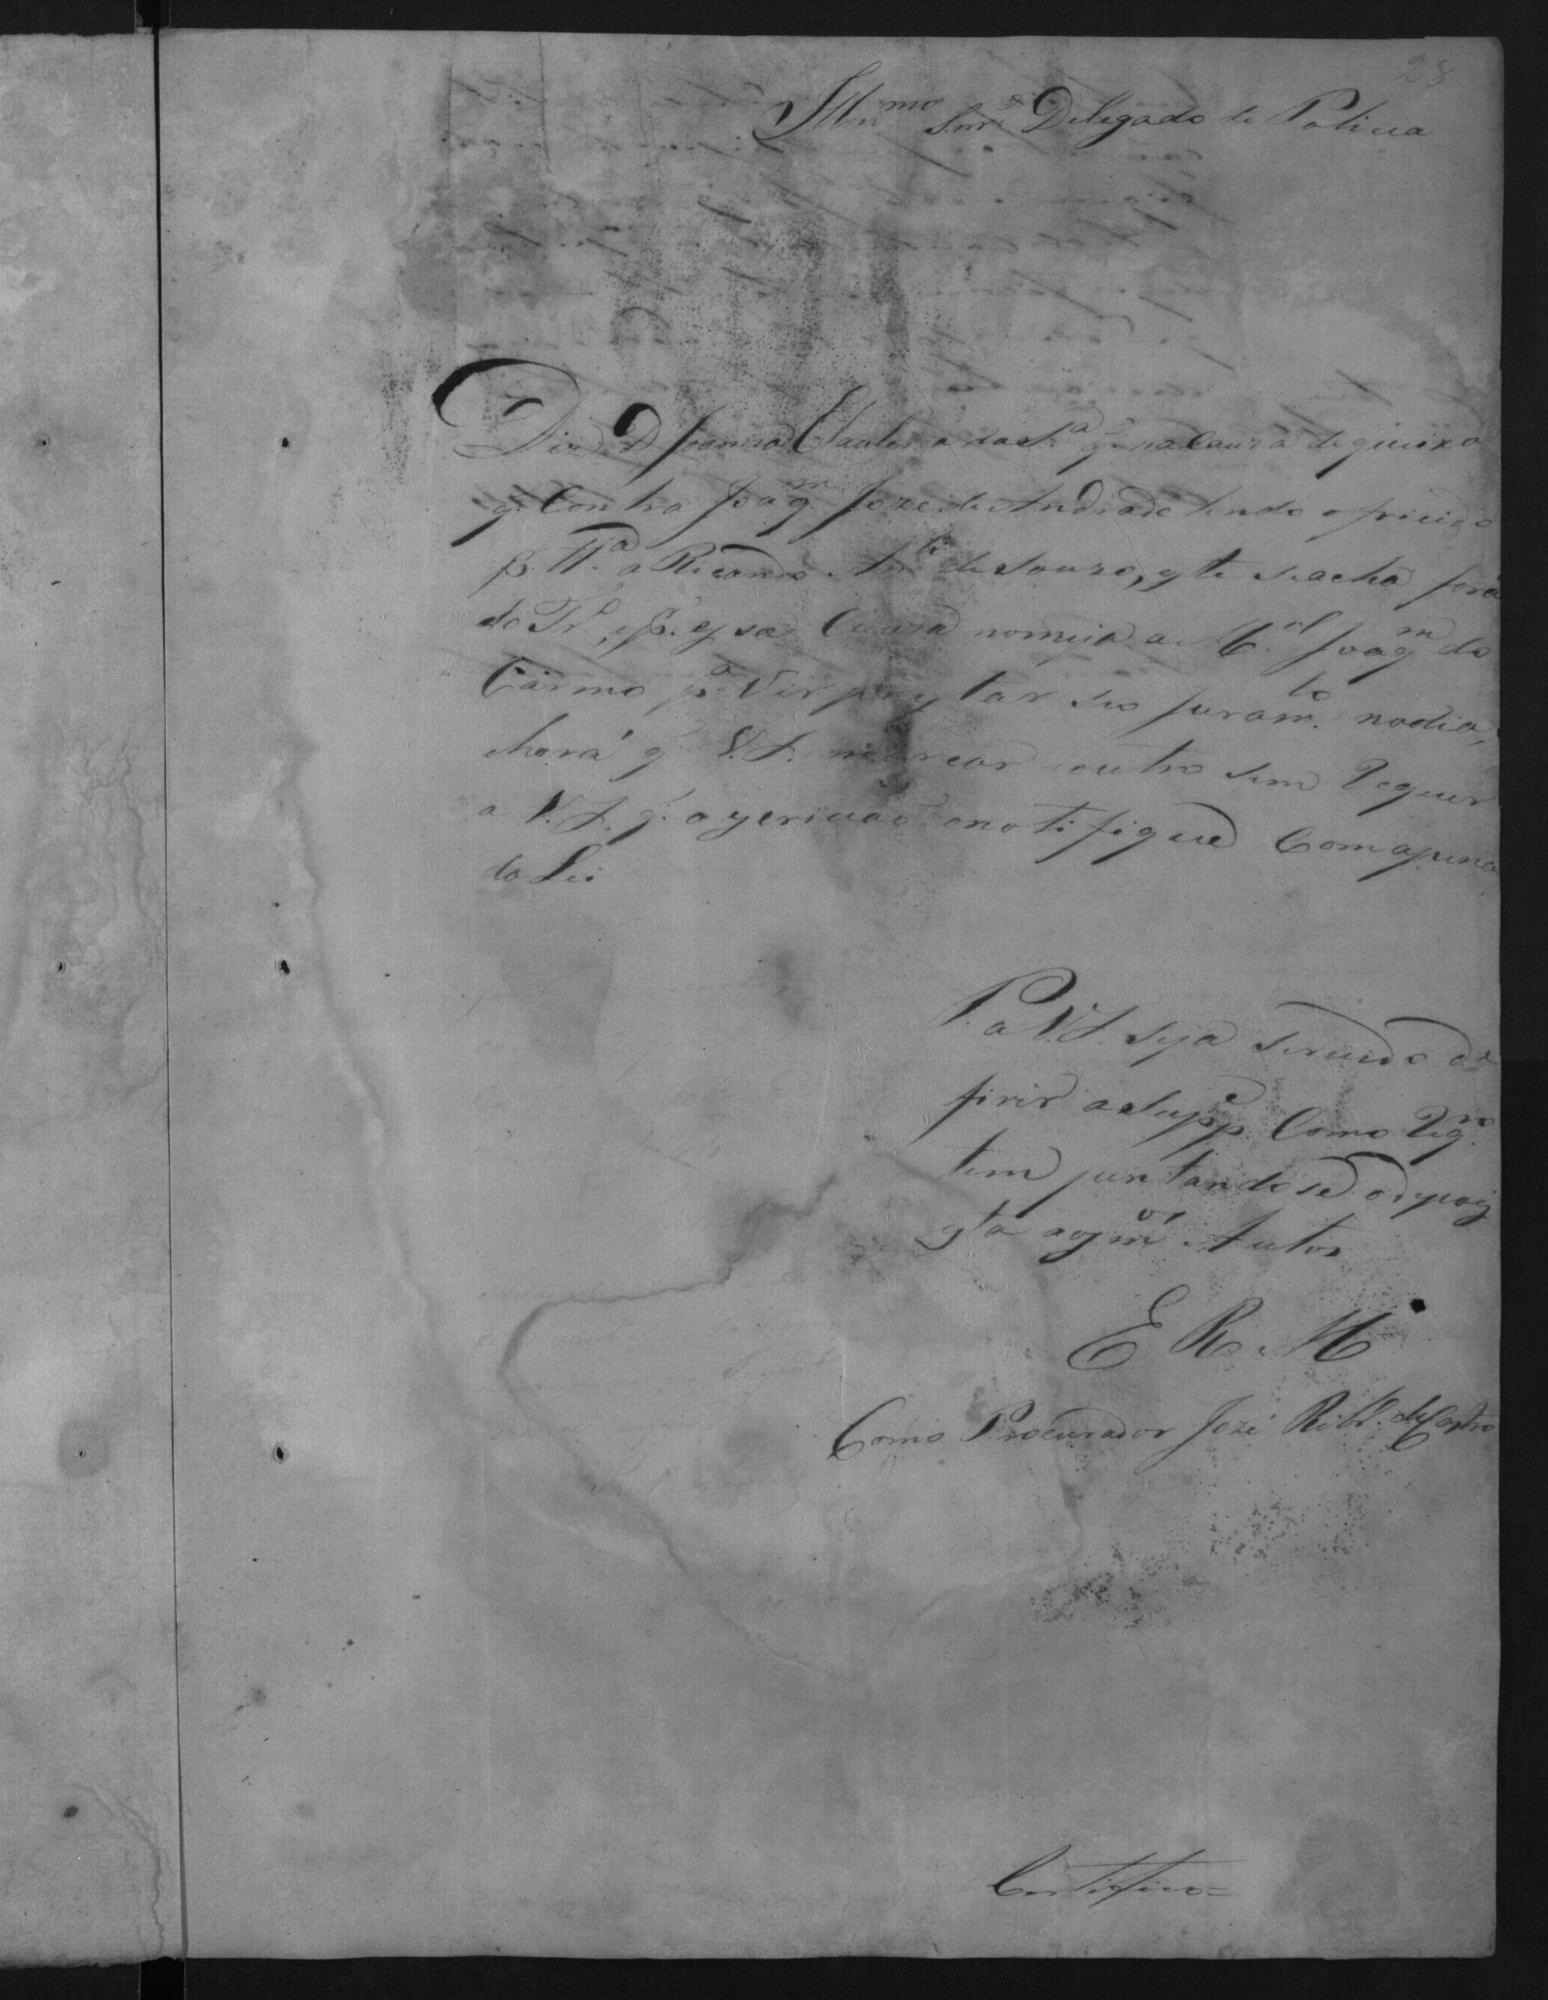 28
Illmo. Snr. Delegado de Policia
Diz D. Joanna da Sa. q. na Cauza de queixa
q. Contra Joaqm. Joze de Andrade tendo oferecido
p. Ta. a Ricardo de Souza, q te se acha fora
do To., e p. q sa Cauza nomeia a Mel. Joaqm. do
Carmo pa. Vir prestar seo juramto. no dia,
e hora q V.S. marcar outro sim Requer
a V.S. q. o escrivão o notifique Com a pena
da Lei
P. a V.S. seja servido de
firir a Suppe. Como Reqro.
tem juntando se
aos mmos. Autos
E R M
Como Procurador José Ribr. de Castro
Certifico=